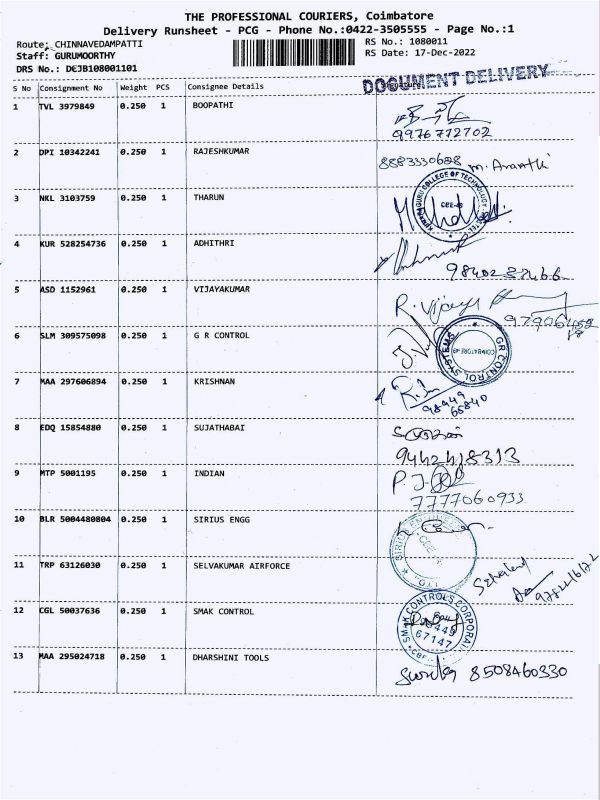 THE PROFESSIONAL COURIERS, Coimbatore
Delivery Runsheet - PCG - Phone No.:0422-3505555 - Page No.:1
Route: CHINNAVEDAMPATTI
RS No.: 1080011
Staff: GURUMOORTHY
RS Date: 17-Dec-2022
DRS No.: DEJB108001101
DOCUMENT DELIVERY
S No Consignment No Weight PCS Consignee Details
1 TVL 3979849 0.250 1 BOOPATHI
9976772702
2 DPI 10342241 0.250 1 RAJESHKUMAR
8883330688 M. Ananthi
3 NKL 3103759 0.250 1 THARUN
GURU COLLEGE OF TECHNOLOGY
4 KUR 528254736 0.250 1 ADHITHRI
5 ASD 1152961 0.250 1 VIJAYAKUMAR
R. Vijaya
6 SLM 309575098 0.250 1 G R CONTROL
GR CONTROL SYSTEMS
COIMBATORE-49
7 MAA 297606894 0.250 1 KRISHNAN
98949
65840
8 EDQ 15854880 0.250 1 SUJATHABAI
9442418313
9 MTP 5001195 0.250 1 INDIAN
7777060933
10 BLR 5004480804 0.250 1 SIRIUS ENGG
11 TRP 63126030 0.250 1 SELVAKUMAR AIRFORCE
12 CGL 50037636 0.250 1 SMAK CONTROL
SMAK CONTROLS CORPORAT
67147
13 MAA 295024718 0.250 1 DHARSHINI TOOLS
8508460330